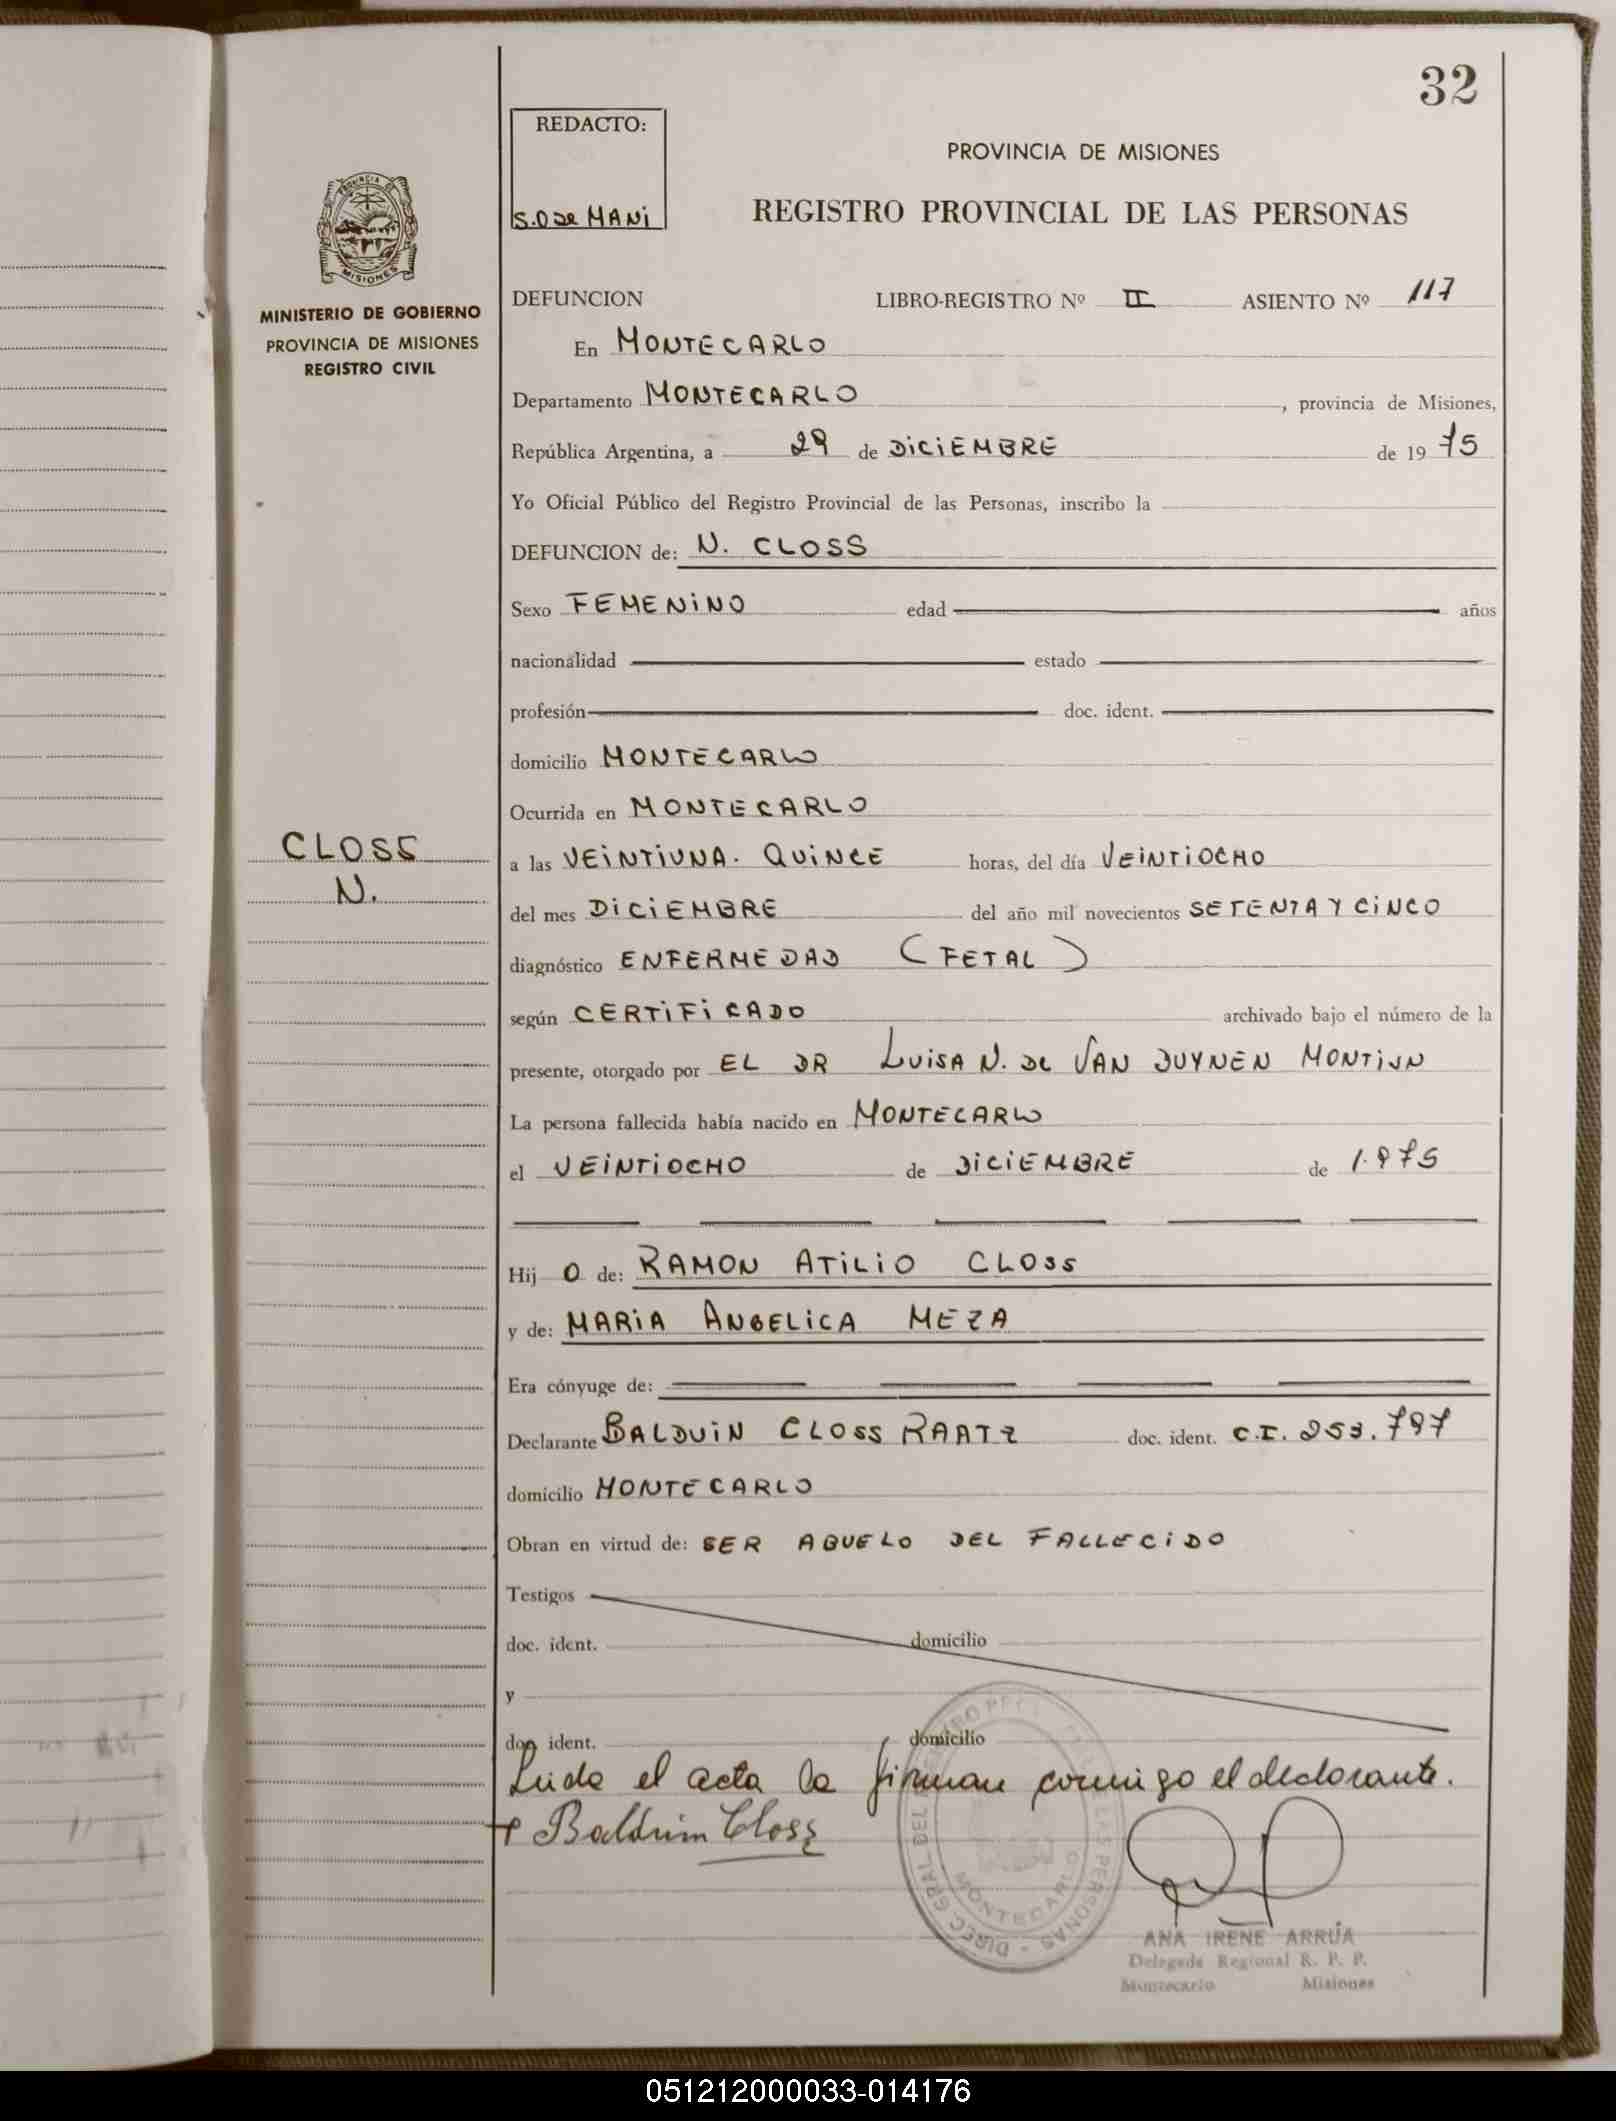 32
REDACTO:
S.O de MANI
PROVINCIA DE MISIONES
REGISTRO PROVINCIAL DE LAS PERSONAS
PROVINCIA DE
MISIONES
MINISTERIO DE GOBIERNO
PROVINCIA DE MISIONES
REGISTRO CIVIL
DEFUNCION LIBRO-REGISTRO Nº II ASIENTO Nº 117
En MONTECARLO
Departamento MONTECARLO, provincia de Misiones,
República Argentina, a 29 de DICIEMBRE de 1975
Yo Oficial Público del Registro Provincial de las Personas, inscribo la
DEFUNCION de: N. CLOSS
Sexo FEMENINO edad años
nacionalidad estado
profesión doc. ident.
domicilio MONTECARLO
Ocurrida en MONTECARLO
CLOSS
N.
a las VEINTIUNA. QUINCE horas, del día VEINTIOCHO
del mes DICIEMBRE del año mil novecientos SETENTA Y CINCO
diagnóstico ENFERMEDAD (FETAL)
según CERTIFICADO archivado bajo el número de la
presente, otorgado por EL DR LUISA N. DE VAN DUYNEN MONTIJN
La persona fallecida había nacido en MONTECARLO
el VEINTIOCHO de DICIEMBRE de 1.975
Hij O de: RAMON ATILIO CLOSS
y de: MARIA ANGELICA MEZA
Era cónyuge de:
Declarante BALDUIN CLOSS RAATZ doc. ident. C.I. 253.797
domicilio MONTECARLO
Obran en virtud de: SER ABUELO DEL FALLECIDO
Testigos
doc. ident. domicilio
y
doc ident. domicilio
Leida el acta la firman conmigo el declarante.
Balduin Closs
DIREC GRAL DEL REGISTRO PROV. DE LAS PERSONAS -
MONTECARLO
ANA IRENE ARRÚA
Delegada Regional R. P. P.
Montecarlo Misiones
051212000033-014176